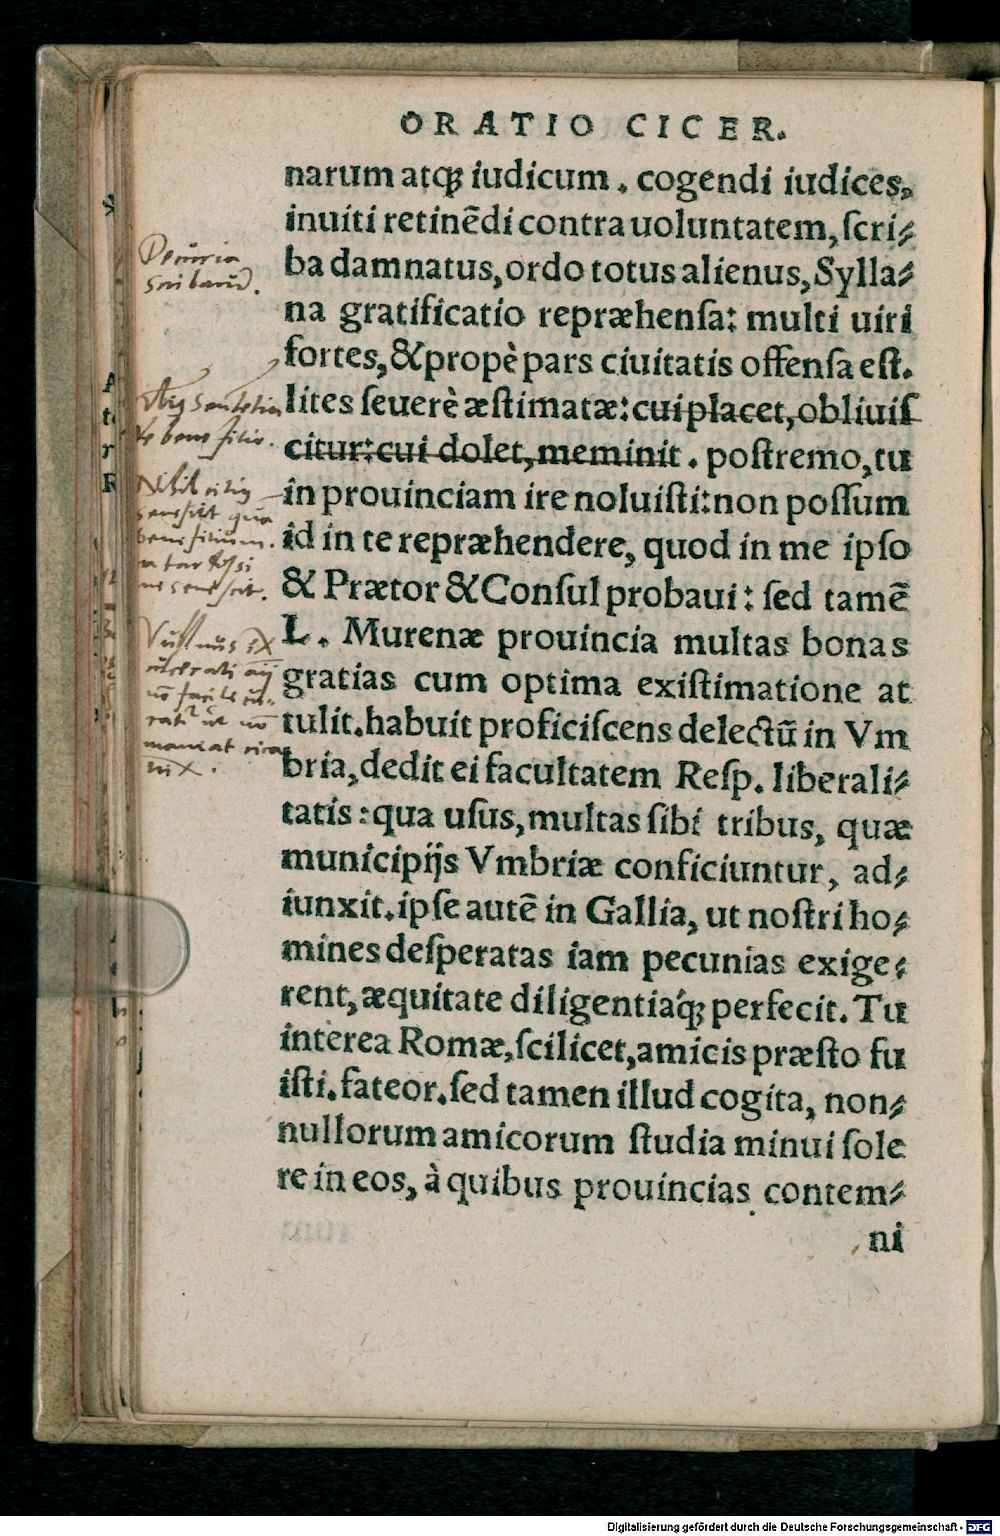 ORATIO CICER.
narum atq́; iudicum. cogendi iudices,
inuiti retinẽdi contra uoluntatem, ſcri-
ba damnatus, ordo totus alienus, Sylla-
na gratificatio repræhenſa: multi uiri
fortes, & propè pars ciuitatis offenſa eſt.
lites ſeuerè æſtimatæ: cui placet, obliuiſ
citur: cui dolet, meminit. poſtremo, tu
in prouinciam ire noluiſti: non poſſum
id in te repræhendere, quod in me ipſo
& Prætor & Conſul probaui: ſed tamẽ
L. Murenæ prouincia multas bonas
gratias cum optima exiſtimatione at
tulit. habuit proficiſcens delectũ in Vm
bria, dedit ei facultatem Reſp. liberali-
tatis: qua uſus, multas ſibi tribus, quæ
municipijs Vmbriæ conficiuntur, ad-
iunxit. ipſe autẽ in Gallia, ut noſtri ho-
mines deſperatas iam pecunias exige-
rent, æquitate diligentiaq́; perfecit. Tu
interea Romæ, ſcilicet, amicis præſto fu
iſti. fateor. ſed tamen illud cogita, non-
nullorum amicorum ſtudia minui ſole
re in eos, à quibus prouincias contem-
ni
Decuria
scribarũ.
Nihil citiq
senescit quã
Digitalisierung gefördert durch die Deutsche Forschungsgemeinschaft - DFG